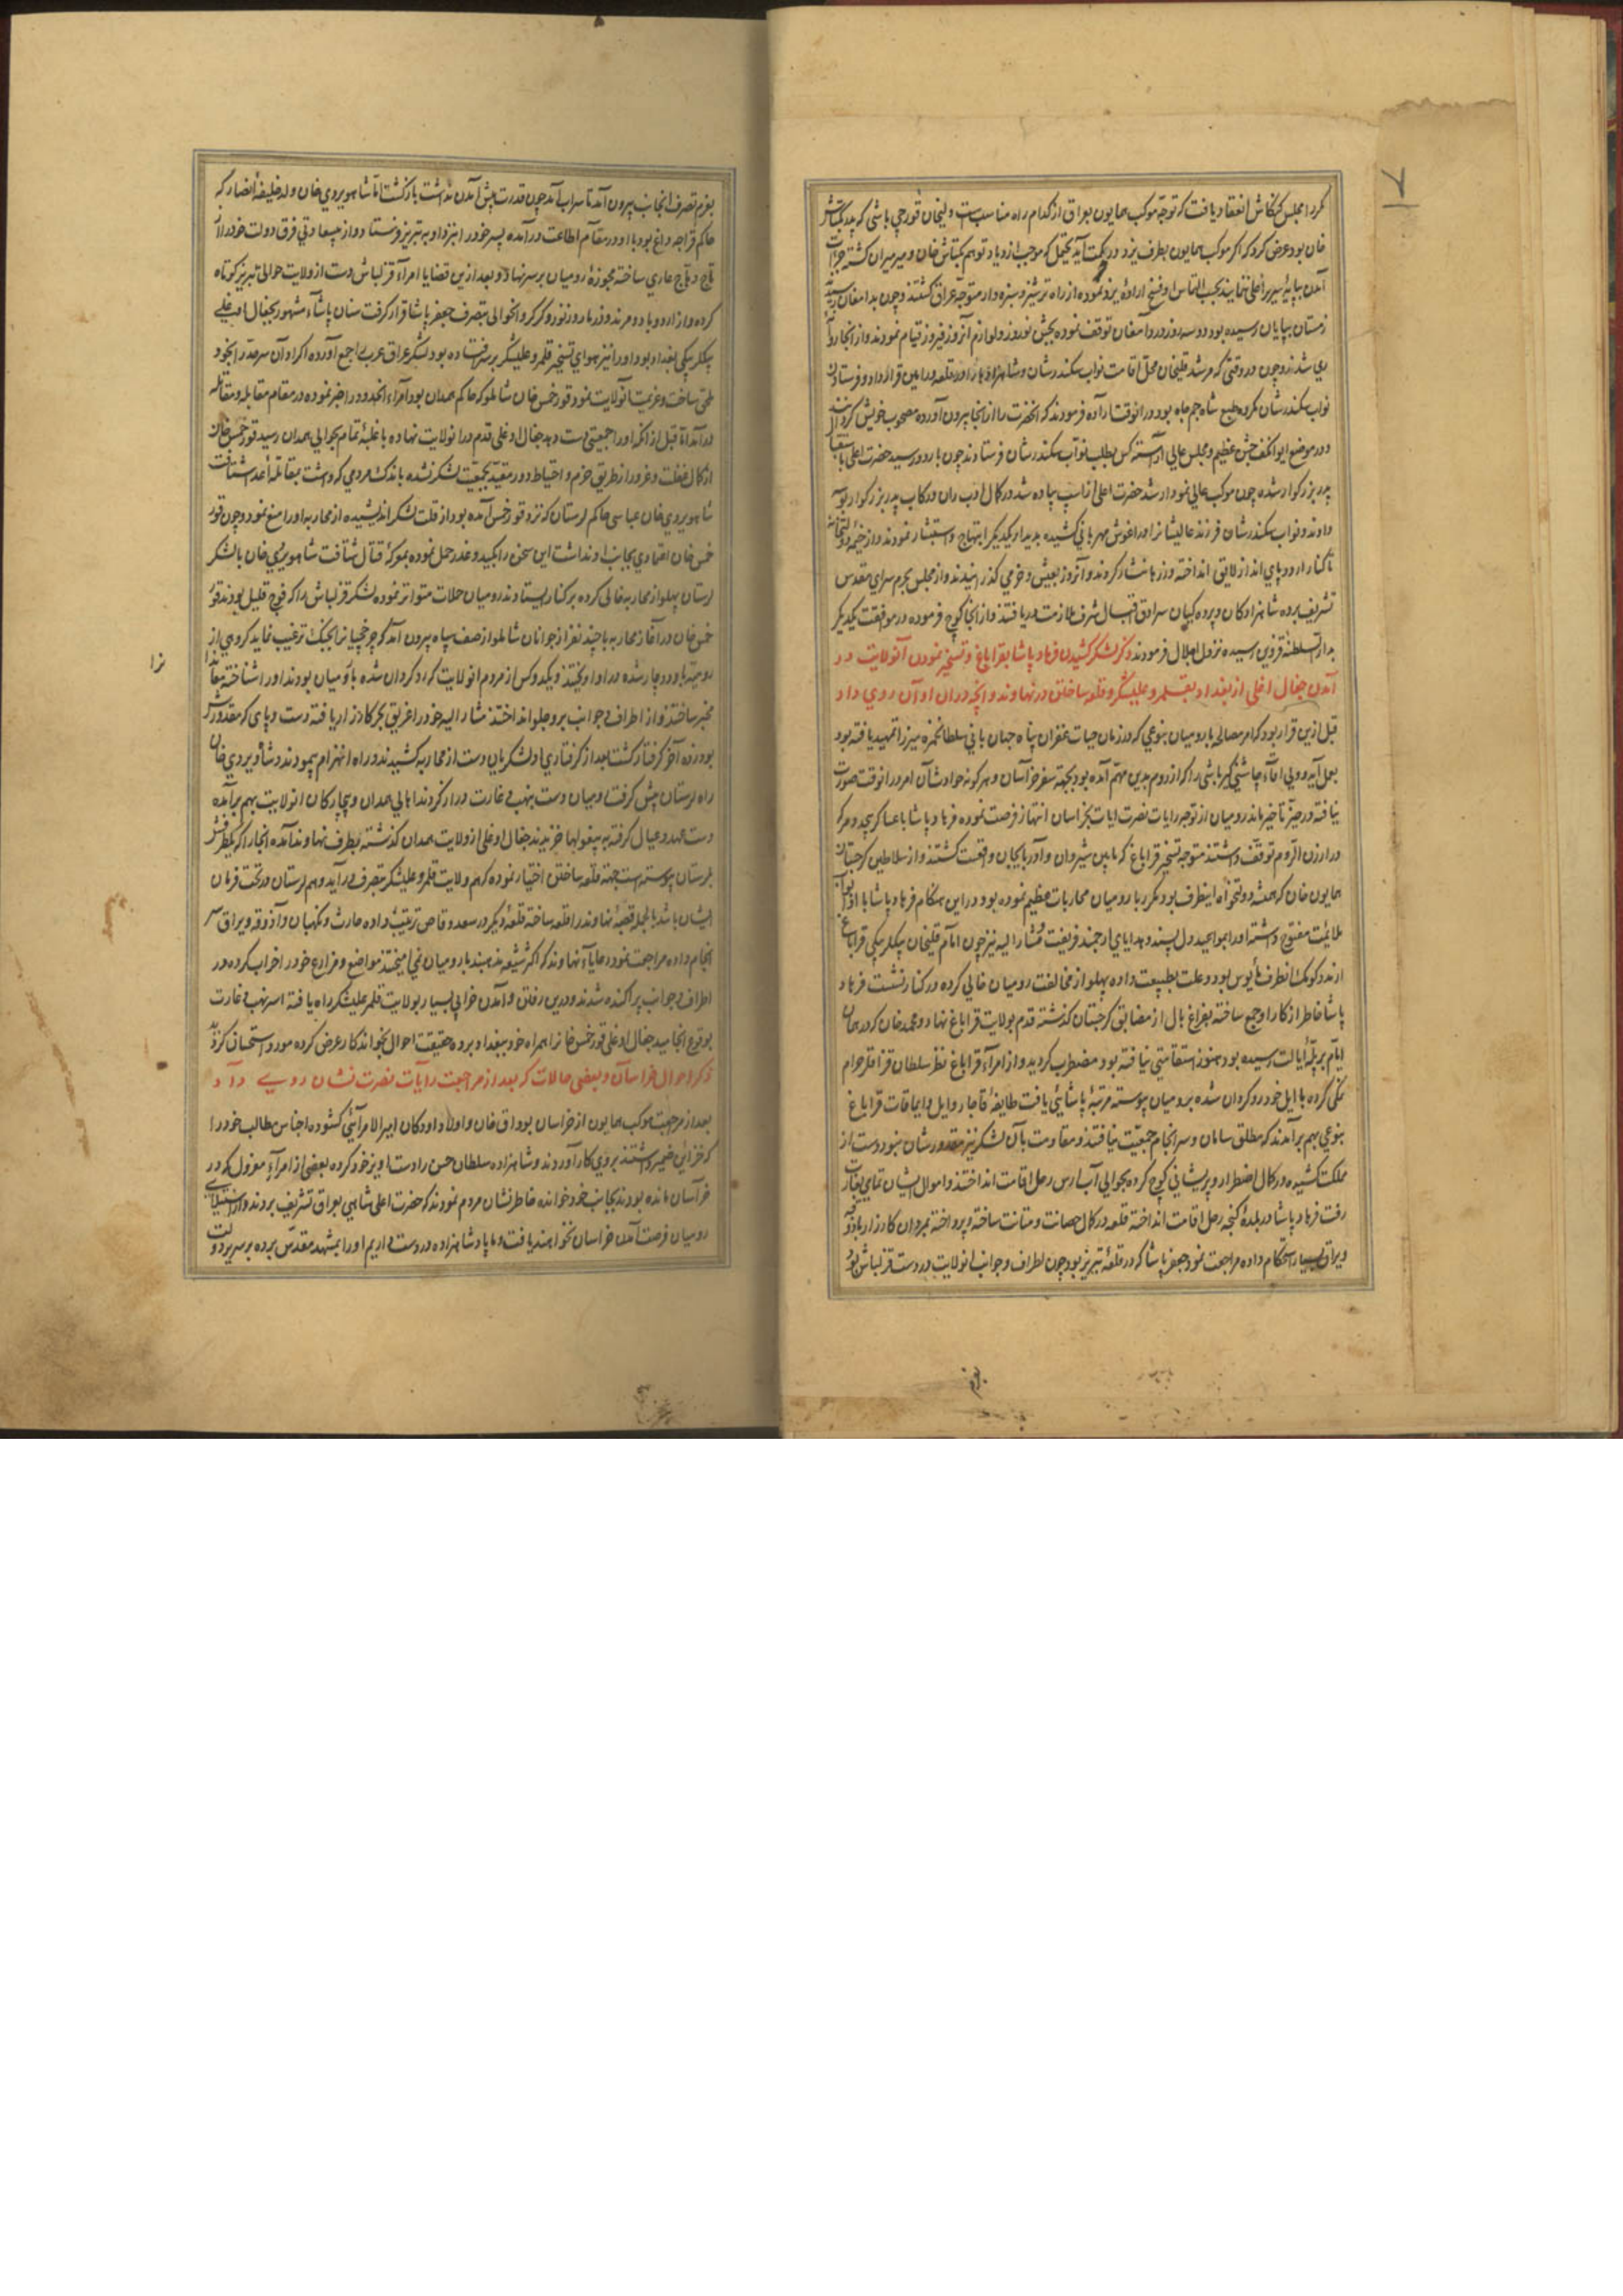 کرد مجلس کنکاش انعقاد یافت که توجه موکب همایون بعراق از کدام راه مناسبست ولیخان قورچی باشی که پدر بکتاش
خان بود عرض کرد که اگر موکب همایون بطرف یزد در حرکت آید یحتمل که موجب ازدیاد توهم بکتاش خان و میرمیران گشته جرات
آمدن بپایه سریر اعلی ننمایند بحسب التماس او فسخ اراده یزد نموده از راه ترشیز و سبزوار متوجه عراق گشتند و چون بدامغان رسید
زمستان بپایان رسیده بود دو سه روز در دامغان توقف نموده بجشن نوروز و لوازم آنروز فیروز قیام نمودند و از انجا روانه
ری شدند و چون در وقتی که مرشد قلیخان محل اقامت نواب سکندرشان و شاهزادها را در قلعه ورامین قرار داد و فرستادن
نواب سکندرشان مکروه طبع شاه جم جاه بود در انوقت اراده فرمودند که انحضرت را از انجا بیرون آورده مصحوب خویش گردانند
و در موضع ایوانکیف جشن عظیم و مجلس عالی آراسته کس بطلب نواب سکندرشان فرستادند چون باردو رسید حضرت اعلی باستقبال
پدر بزرگوار شده چون موکب عالی نمودار شد حضرت اعلی از اسپ پیاده شد در کمال ادب ران و رکاب پدر بزرگوار بوسه
دادند و نواب سکندرشان فرزند عالیشان را در اغوش مهربانی کشیده بدیدار یکدیگر ابتهاج و استبشار نمودند و از خیمه دولتخانه
تا کنار اردو پای انداز لایق انداخته و زرها نثار کردند و آنروز بعیش و خرمی گذرانیدند و از مجلس بحرم سرای مقدس
تشریف برده شاهزادگان و پرده کیان سرادق اقبال شرف ملازمت دریافتند و از انجا کوچ فرموده در موافقت یکدیگر
بدار السلطنه قزوین رسیده نزول اجلال فرمودند ذکر لشکر کشیدن فرهاد پاشا بقراباغ و تسخیر نمودن آنولایت و در
آمدن جغال اغلی از بغداد بقلمرو علیشکر و قلعه ساختن در نهاوند و انچه در ان اوان روی داد
قبل ازین قرار بود که امر مصالحه با رومیان بنوعی که در زمان حیات غفران پناه جهان بانی سلطان حمزه میرزا تمهید یافته بود
بعمل آید و ولی آقاء چاشنی گیر باشی را که از روم بدین مهم آمده بود بجهة سفر خراسان و هرگونه حوادث آن امر در انوقت صورت
نیافته در حیز تاخیر ماند رومیان از توجه رایات نصرت ایات بخراسان انتهاز فرصت نموده فرهاد پاشا با عساکر بیحد و مر که
در ارزن الروم توقف داشتند متوجه تسخیر قراباغ که مابین شیروان و آذربایجان واقعست گشتند و از سلاطین گرجستان
همایون خان که همیشه دولتخواه اینطرف بود و مکرر با رومیان محاربات عظیم نموده بود در این هنگام فرهاد پاشا با او ابواب
ملائمت مفتوح داشته او را بمواعید دل پسند و هدایای ارجمند فریفت و مشار الیه نیز چون امام قلیخان بیگلربیگی قراباغ
از مدد و کومک انطرف مأیوس بود و علت بطبیعت داده پهلو از مخالفت رومیان خالی کرده در کنار نشست فرهاد
پاشا خاطر از کار او جمع ساخته بفراغ بال از مضایق گرجستان گذشته قدم بولایت قراباغ نهاد و محمد خان که در همان
ایام برتبه ایالت رسیده بود هنوز استقامتی نیافته بود مضطرب گردید و از امراء قراباغ نظر سلطان قزاقلر حرام
نمکی کرده با ایل خود روکردان شده برومیان پیوسته مرتبه پاشائی یافت طایفه قاجار و ایل و ایماقات قراباغ
بنوعی بهم برآمدند که مطلق سامان و سرانجام جمعیت نیافتند و مقاومت بآن لشکر نیز مقدورشان نبود دست از
مملکت کشیده در کمال اضطرار و پریشانی کوچ کرده بحوالی آب ارس رحل اقامت انداختند و اموال ایشان تمامی بغارت
رفت فرهاد پاشا در بلده گنجه رحل اقامت انداخته قلعه در کمال حصانت و متانت ساخته و پرداخته بمردان کارزار و اذوقه
و یراق بسیار استحکام داده مراجعت نمود جعفر پاشا که در قلعه تبریز بود چون اطراف و جوانب انولایت در دست قزلباش بود
بعزم
بعزم تصرف انجانب بیرون آمد تا سراب آمد چون قدرت پیش آمدن نداشت بازگشت اما شاهویردی خان ولد خلیفه انصار که
حاکم قراجه داغ بود با او در مقام اطاعت درآمده پسر خود را نزد او به تبریز فرستاد و از بیسعادتی فرق دولت خود را از
تاج و هاج عاری ساخته مجوزه رومیان بر سر نهاد و بعد ازین قضایا امراء قزلباش دست از ولایت حوالی تبریز کوتاه
کرده و از اردوباد و مرند و زنوز و گرگر و انحوالی بتصرف جعفر پاشا قرار گرفت سنان پاشاء مشهور بجغال اوغلی
بیگلربیگی بغداد بود او را نیز هوای تسخیر قلمرو علیشکر بر سر افتاده بود لشکر عراق عرب را جمع آورده اکراد آن سرحد را بخود
ملحق ساخت و عزیمت آنولایت نمود قورخمس خان شاملو که حاکم همدان بود امراء انحدود را خبر نموده در مقام مقابله و مقاتله
درآمد اما قبل از انکه او را جمعیتی دست دهد جغال اوغلی قدم در انولایت نهاده با غلبه تمام بحوالی همدان رسید قورخمس خان
از کمال غفلت و غرور از طریق حزم و احتیاط دور مقید بجمعیت لشکر نشده باندک مردمی که داشت بمقابله اعدا شتافت
شاهویردی خان عباسی حاکم لرستان که نزد قورخمس آمده بود از قلت لشکر اندیشیده از محاربه او را منع نمود و چون قور
خمس خان اعتمادی بجانب او نداشت این سخن را بکید و غدر حمل نموده بمعرکه قتال شتافت شاهویردی خان با لشکر
لرستان پهلو از محاربه خالی کرده بر کنار ایستادند رومیان حملات متواتر نموده لشکر قزلباش را که فوج قلیل بودند قور
خمس خان در آغاز محاربه با چند نفر از جوانان شاملو از صف سپاه بیرون آمد که چرخچیان را بجنگ ترغیب نماید گروهی از
رومیه باو دوچار شده در او اویختند و یکدو کس از مردم انولایت که روکردان شده با رومیان بودند او را شناخته
مخبر ساختند و از اطراف و جوانب برو جلو انداختند مشار الیه خود را غریق بحر کارزار یافته دست و پای که مقدورش
بود زده آخر گرفتار گشت بعد از گرفتاری او لشکریان دست از محاربه کشیدند و راه انهزام پیمودند و شاهویردی خان
راه لرستان پیش گرفت رومیان دست بنهب و غارت دراز کردند اهالی همدان و بیچارگان انولایت بهم برآمده
دست عهد و عیال گرفته به بیغولها خزیدند جغال اوغلی از ولایت همدان گذشته بطرف نهاوند آمده انجا را که یکطرفش
بلرستان پیوسته است جهة قلعه ساختن اختیار نموده که هم ولایت قلمرو علیشکر بتصرف درآید و هم لرستان در تحت فرمان
ایشان باشد بالجمله قصبه نهاوند را قلعه ساخته قلعه دیگر در سعد وقاص ترتیب داده حارث و نگهبان و آذوقه و یراق سر
انجام داده مراجعت نمود رعایاء نهاوند که اکثر شیعه مذهبند با رومیان نمی امیختند مواضع و مزارع خود را خراب کرده در
اطراف و جوانب پراکنده شدند و درین رفتن و آمدن خرابی بسیار بولایت قلمرو علیشکر راه یافته اسر نهب و غارت
بوقوع انجامید جغال اوغلی قورخمس خان را همراه خود ببغداد برده حقیقت احوال بخواندکار عرض کرده مورد استحسان گردید
ذکر احوال خراسان و بعضی حالات که بعد از مراجعت رایات نصرت نشان روی داد
بعد از مراجعت موکب همایون از خراسان بوداق خان و اولاد او دکان امیر الامرائی گشوده اجناس مطالب خود را
که در خزاین ضمیر داشتند بروی کار آوردند و شاهزاده سلطان حسن را دست اویز خود کرده بعضی از امراء معزول که در
خراسان مانده بودند بجانب خود خوانده خاطرنشان مردم نمودند که حضرت اعلی شاهی بعراق تشریف بردند و از استیلای
رومیان فرصت آمدن خراسان نخواهند یافت و ما پادشاهزاده در دست داریم او را بمشهد مقدس برده بر سریر دولت